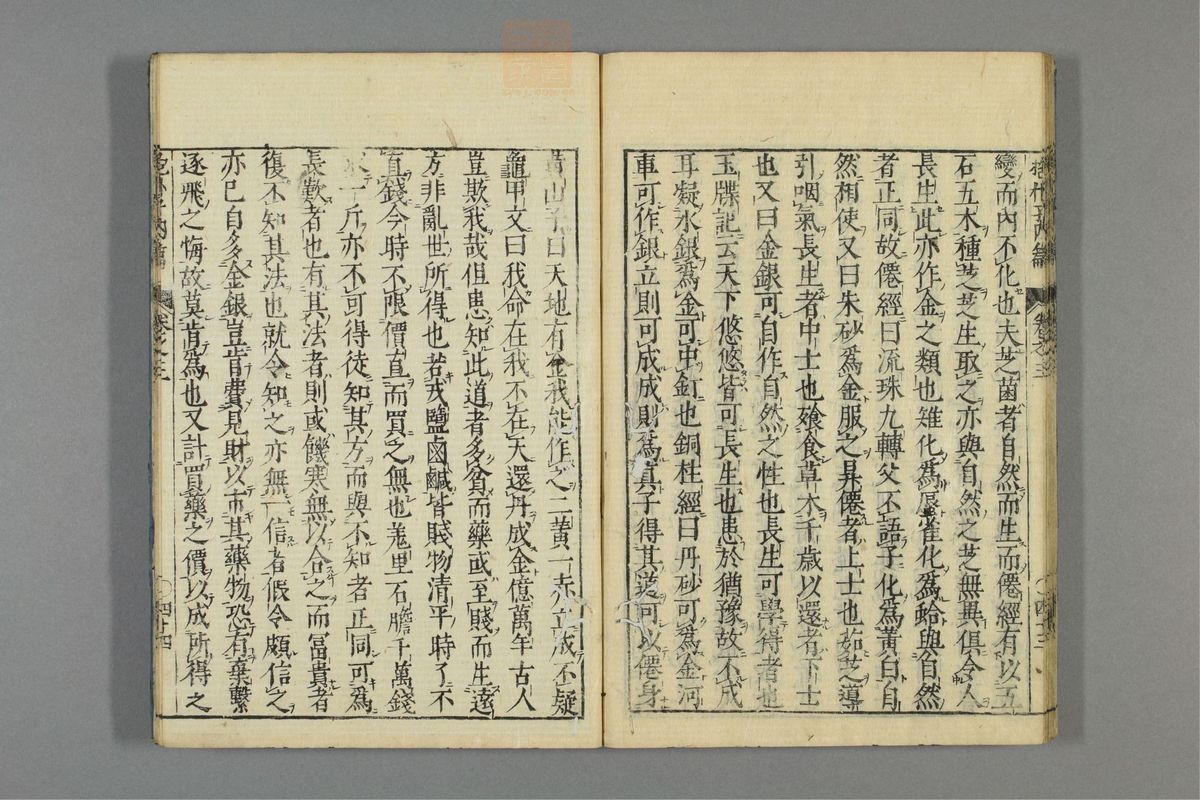 變而內不化也夫芝菌者自然而生而僊經有以五
石五木種芝芝生取之亦與自然之芝無異俱令人
長生此亦作金之類也雉化爲蜃雀化爲蛤與自然
者正同故僊經曰流珠九轉父不語子化爲黃白自
然相使又曰朱砂爲金服之昇僊者上士也茹芝導
引咽氣長生者中士也飱食草木千歲以還者下士
也又曰金銀可自作自然之性也長生可學得者也
玉牒記云天下悠悠皆可長生也患於猶豫故不成
耳凝水銀爲金可中釘也銅柱經曰丹砂可爲金河
車可作銀立則可成成則爲真子得其道可以僊身
黃山子曰天地有金我能作之二黃一赤立成不疑
龜甲文曰我命在我不在天還丹成金億萬年古人
豈欺我哉但患知此道者多貧而藥或至賤而生遠
方非亂世所得也若戎鹽鹵鹹皆賤物清平時了不
直錢今時不限價直而買之無也羗里石膽千萬錢
求一斤亦不可得徒知其方而與不知者正同可爲
長歎者也有其法者則或饑寒無以合之而富貴者
復不知其法也就令知之亦無一信者假令頗信之
亦已自多金銀豈肯費見財以市其藥物恐有棄繫
逐飛之悔故莫肯爲也又計買藥之價以成所得之